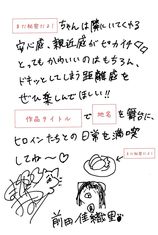 まだ秘密だよ！ちゃんは隣にいてくれる
安心感、親近感がピカイチ♡♡
とってもかわいいのはもちろん、
ドキッとしてしまう距離感を
ぜひ楽しんでほしい!!
作品タイトルで地名を舞台に、
ヒロインたちとの日常を満喫
してね〜♡
まだ秘密だよ！
前田佳織里